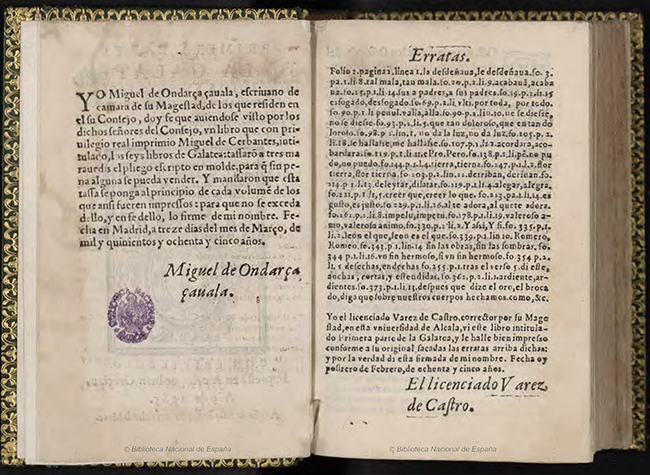 YO Miguel de Ondarça çauala, escriuano de
camara de su Magestad, de los que residen en
el su Consejo, doy fe que auiendose visto por los
dichos señores del Consejo, vn libro que con pri-
uilegio real imprimio Miguel de Cerbantes, inti-
tulado, los seys libros de Galatea: tassarõ a tres ma
rauedis el pliego escripto en molde, para q̃ sin pe-
na alguna se pueda vender. Y mandaron que esta
tassa se ponga al principio de cada volumẽ de los
que ansi fueren impressos: para que no se exceda
dello, y en fe dello, lo firme de mi nombre. Fe-
cha en Madrid, a treze dias del mes de Março, de
mil y quinientos y ochenta y cinco años.
Miguel de Ondarça
çauala.
© Biblioteca Nacional de España
Erratas.
Folio 2. pagina 2. linea 1. la desdeñaua, le desdeñaua. fo. 3.
p. 2. li. 8. tal mala, tau mala. fo. p. 1. li. 9. acabauã, acaba
ua. fo. 15. p. 1. li. 14. sus a padres, a sus padres. fo. 19. p. 2. li. 15
esfogado, desfogado. fo. 69. p. 1. li. vlti. por toda, por todo.
fo. 90. p. 1. li. penul. valia, alla. fo. 90. p. 1. lin. 10. ne se diesse,
no se diesse. fo. 93. p. 1. li. 5. que tan doloroso, que en tan do
loroso. fo. 98. p. 1. lin. 1. no da la luz, no da luz. fo. 105. p. 2.
li. 18. se hallasse, me hallasse. fo. 107. p. 1. li. 2. acordara, aco-
bardara. fo. 119. p. 1. li. me Pro. Pero. fo. 138. p. 1. li. pẽ. no pu
do, no puedo. fo. 144. p. 1. l. 4. tierra, tierno. fo. 147. p. 1. l. flor
tierra, flor tierna. fo. 103. p. lin. 11. derriban, deriuan. fo.
214. p. 1. l. 13. deleytar, dilatar. fo. 119. p. 1. li. 4. alegar, alegra.
fo. 221. p. 1. l. 5. creer que, creer lo que. fo. 213. p. 2. li. 14. es
gusto, es justo. fo. 229. p. li. 16. al te adora, al que te adora.
fo. 261. p. 1. li. 8. impelu, impetu. fo. 278. p. 1. li. 19. valeroso a-
mo, valeroso animo. fo. 330. p. 1. li. 2. Y assi, Y si. fo. 335. p. 1.
li. 2. leon el que, leon es el que. fo. 339. p. 1. lin. 10. Romero,
Romeo. fo. 343. p. 1. lin. 14 sin las obras, sin las sombras. fo.
344 p. 1. li. 16. vn sin hermoso, si vn sin hermoso. fo. 354 p. 2.
li. 5 desechas, en dechas fo. 355. p. 1. tras el verso 5. di esse,
anchas, cortas, y estendidas. fo. 362. p. 2. li. 1. ardiente, ar-
dientes. fo. 373. p. 1. li. 13. despues que dize el oro, el broca
do, diga que sobre nuestros cuerpos hechamos. como, &c.
Yo el licenciado Varez de Castro, corrector por su Mage
stad, en esta vniuersidad de Alcala, vi este libro intitula-
do Primera parte de la Galatea, y le halle bien impresso
conforme a su original, sacadas las erratas arriba dichas:
y por la verdad di esta firmada de mi nombre. Fecha oy
postrero de Febrero, de ochenta y cinco años.
El licenciado Varez
de Castro.
© Biblioteca Nacional de España